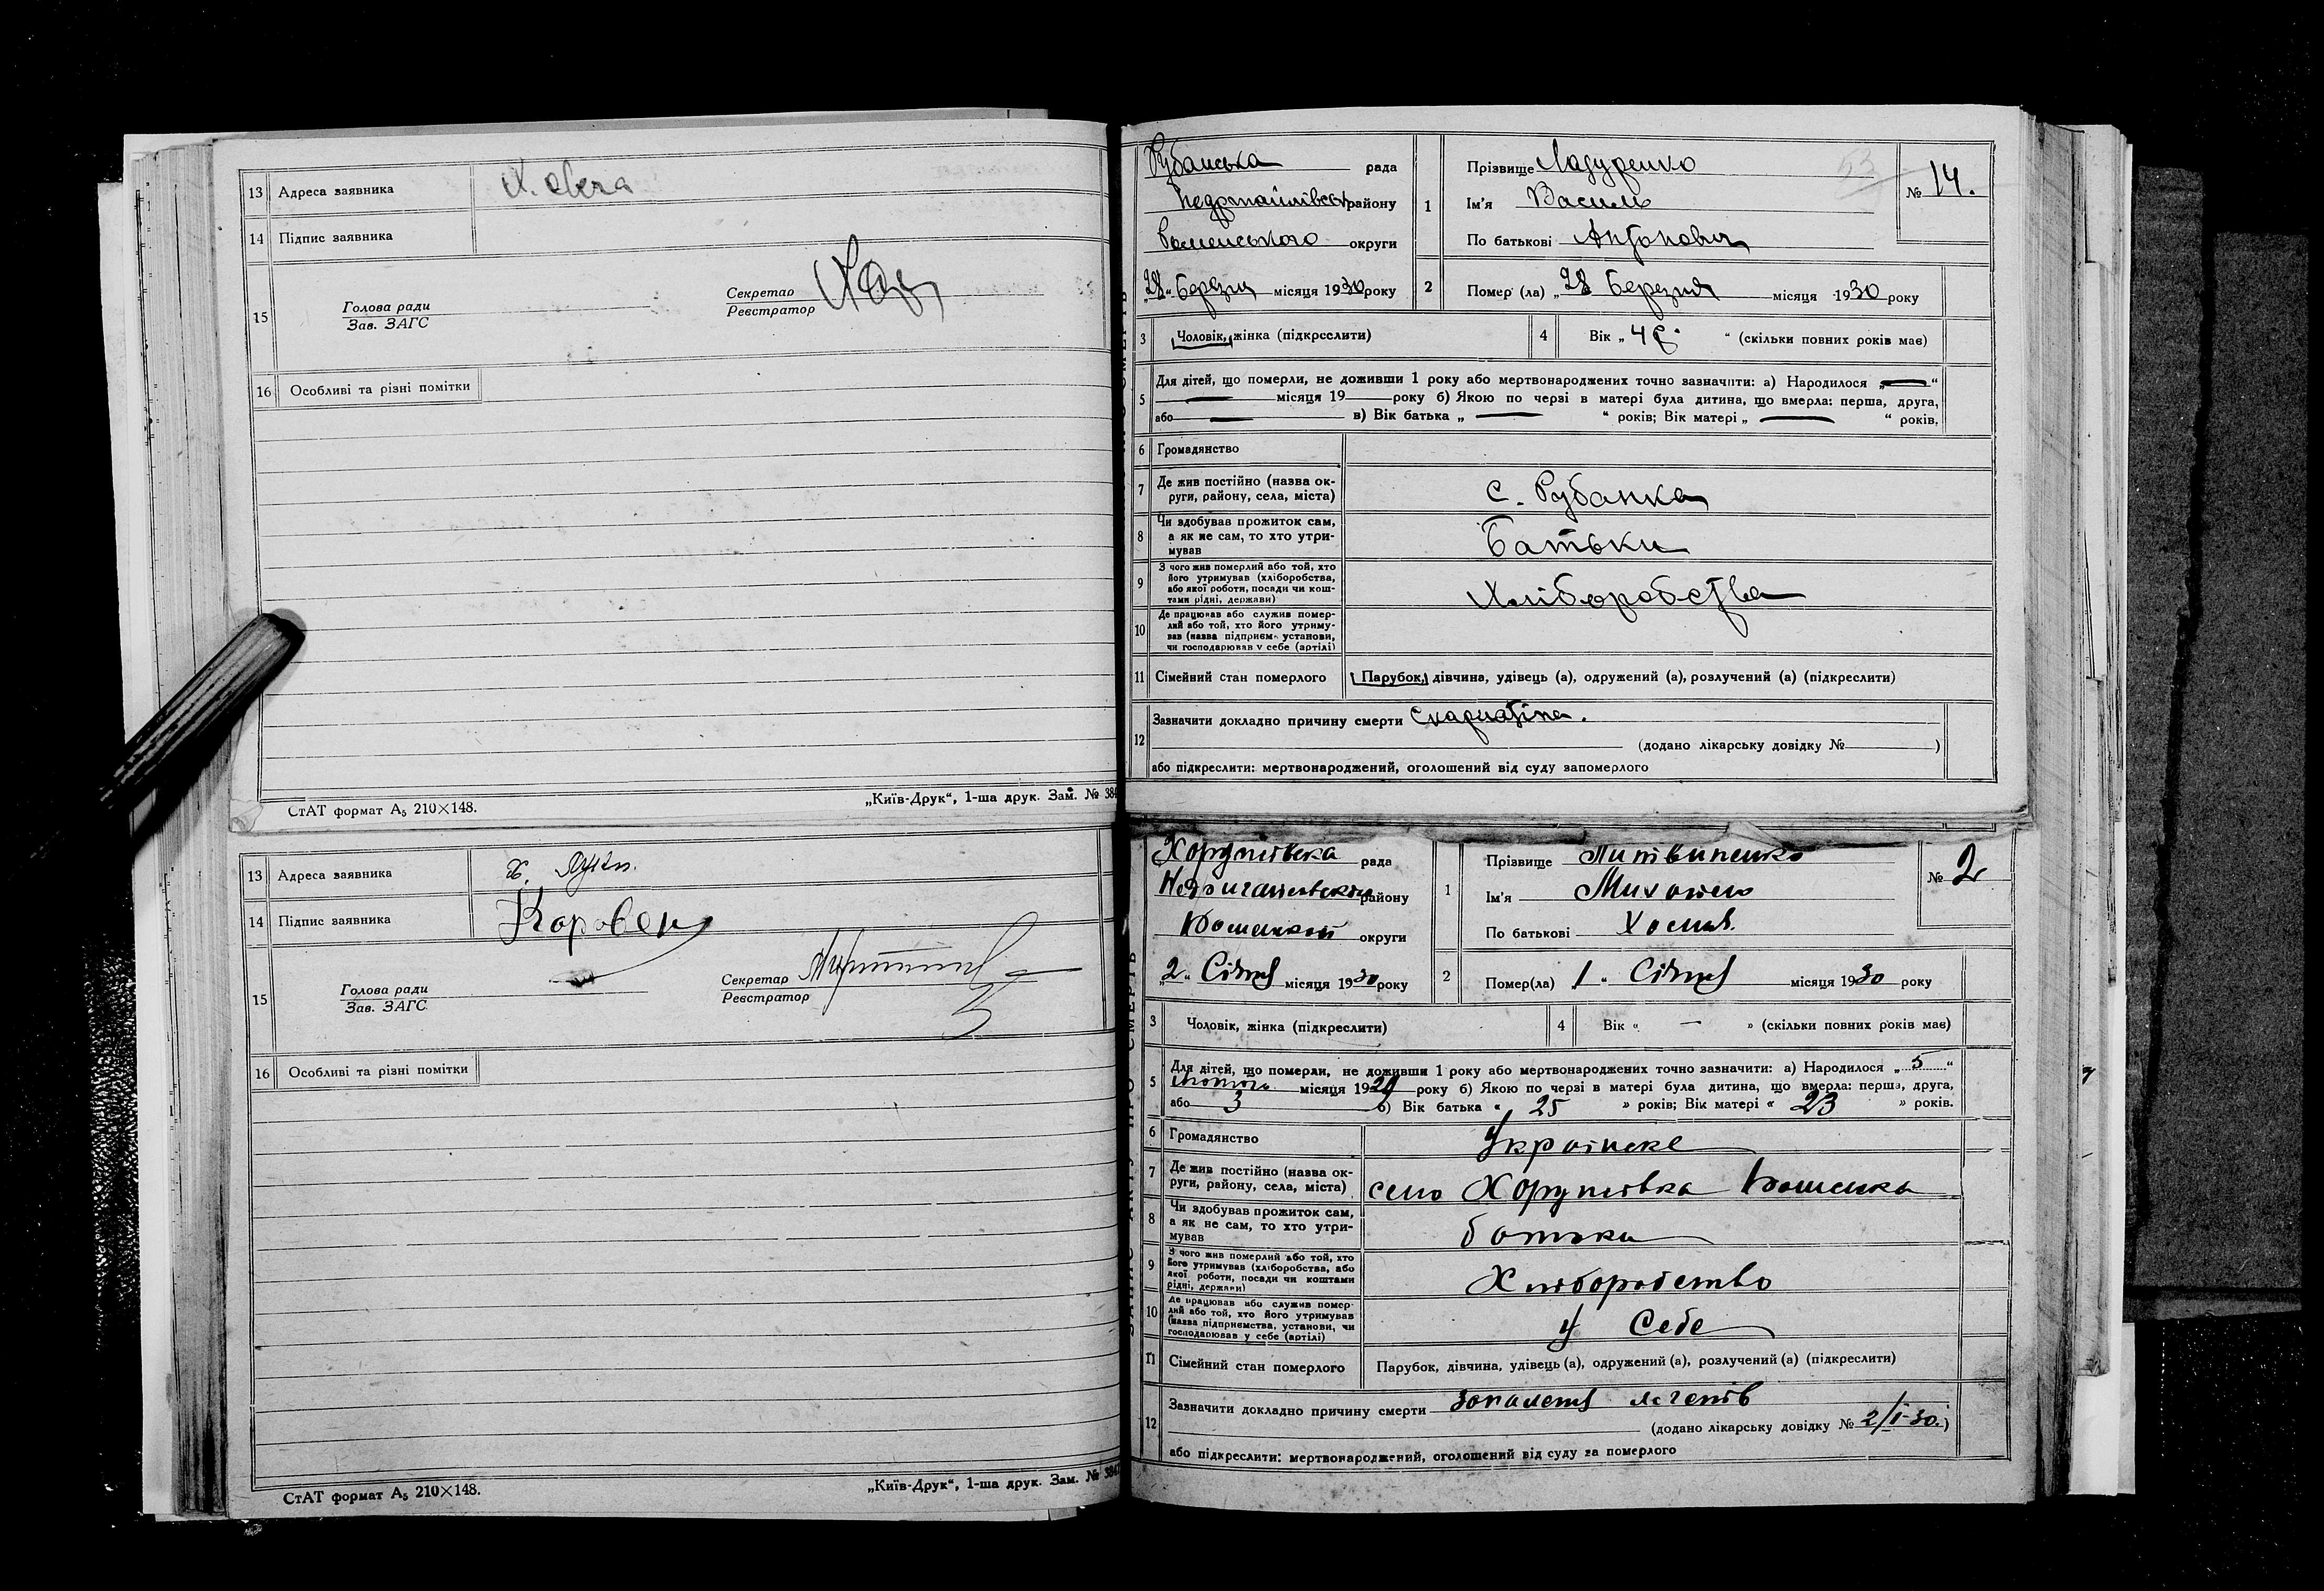 13 Адреса заявника
14 Підпис заявника
15 Голова ради
Зав. ЗАГС
Секретар
Реєстратор
16 Особливі та різні помітки
СтАТ формат А5 210×148.
„Київ-Друк“, 1-ша друк. Зам. № 384
Рубанська рада
району
Роменського округи
„28“ Березня місяця 1930 року
1
Прізвище
Ім'я Василь
По батькові Антонович
№ 14.
53
2 Помер (ла) „28 Березня місяця 1930 року
3 Чоловік, жінка (підкреслити)
4 Вік „ “ (скільки повних років має)
5 Для дітей, що померли, не доживши 1 року або мертвонароджених точно зазначити: а) Народилося „—“
— місяця 19 року б) Якою по черзі в матері була дитина, що вмерла: перша, друга,
або — в) Вік батька „ — “ років; Вік матері „ — “ років.
6 Громадянство
7 Де жив постійно (назва ок-
руги, району, села, міста) с. Рубанка
8 Чи здобував прожиток сам,
а як не сам, то хто утри-
мував Батьки
9 З чого жив померлий або той, хто
його утримував (хліборобства,
або якої роботи, посади чи кош-
тами рідні, держави) Хліборобства
10 Де працював або служив помер-
лий або той, хто його утриму-
вав (назва підприєм. установи,
чи господарював у себе (артілі)
11 Сімейний стан померлого Парубок, дівчина, удівець (а), одружений (а), розлучений (а) (підкреслити)
12 Зазначити докладно причину смерти Скарлатіна.
(додано лікарську довідку № )
або підкреслити: мертвонароджений, оголошений від суду запомерлого
13 Адреса заявника
14 Підпис заявника
15 Голова ради
Зав. ЗАГС
Секретар
Реєстратор
16 Особливі та різні помітки
СтАТ формат А5 210×148.
„Київ-Друк“, 1-ша друк. Зам. № 384
Хоружівка рада
району
округи
„2“ Січня місяця 1930 року
1
Прізвище Литвиненко
Ім'я Михайло
По батькові
№ 2
2 Помер(ла) 1“ Січня місяця 1930 року
3 Чоловік, жінка (підкреслити)
4 Вік « — » (скільки повних років має)
5 Для дітей, що померли, не доживши 1 року або мертвонароджених точно зазначити: а) Народилося „5“
лютого місяця 1929 року б) Якою по черзі в матері була дитина, що вмерла: перша, друга,
або 3 б) Вік батька « 25 » років; Вік матері « 23 » років.
6 Громадянство Українске
7 Де жив постійно (назва ок-
руги, району, села, міста) село Хоружівка
8 Чи здобував прожиток сам,
а як не сам, то хто утри-
мував батьки
9 З чого жив померлий або той, хто
його утримував (хліборобства, або
якої роботи, посади чи коштами
рідні, держави) Хліборобство
10 Де працював або служив помер-
лий або той, хто його утримував
(назва підприємства, установи, чи
господарював у себе (артілі) у Себе
11 Сімейний стан померлого Парубок, дівчина, удівець (а), одружений (а), розлучений (а) (підкреслити)
12 Зазначити докладно причину смерти запаленя легенів
(додано лікарську довідку № 2/I-30.)
або підкреслити: мертвонароджений, оголошений від суду за померлого